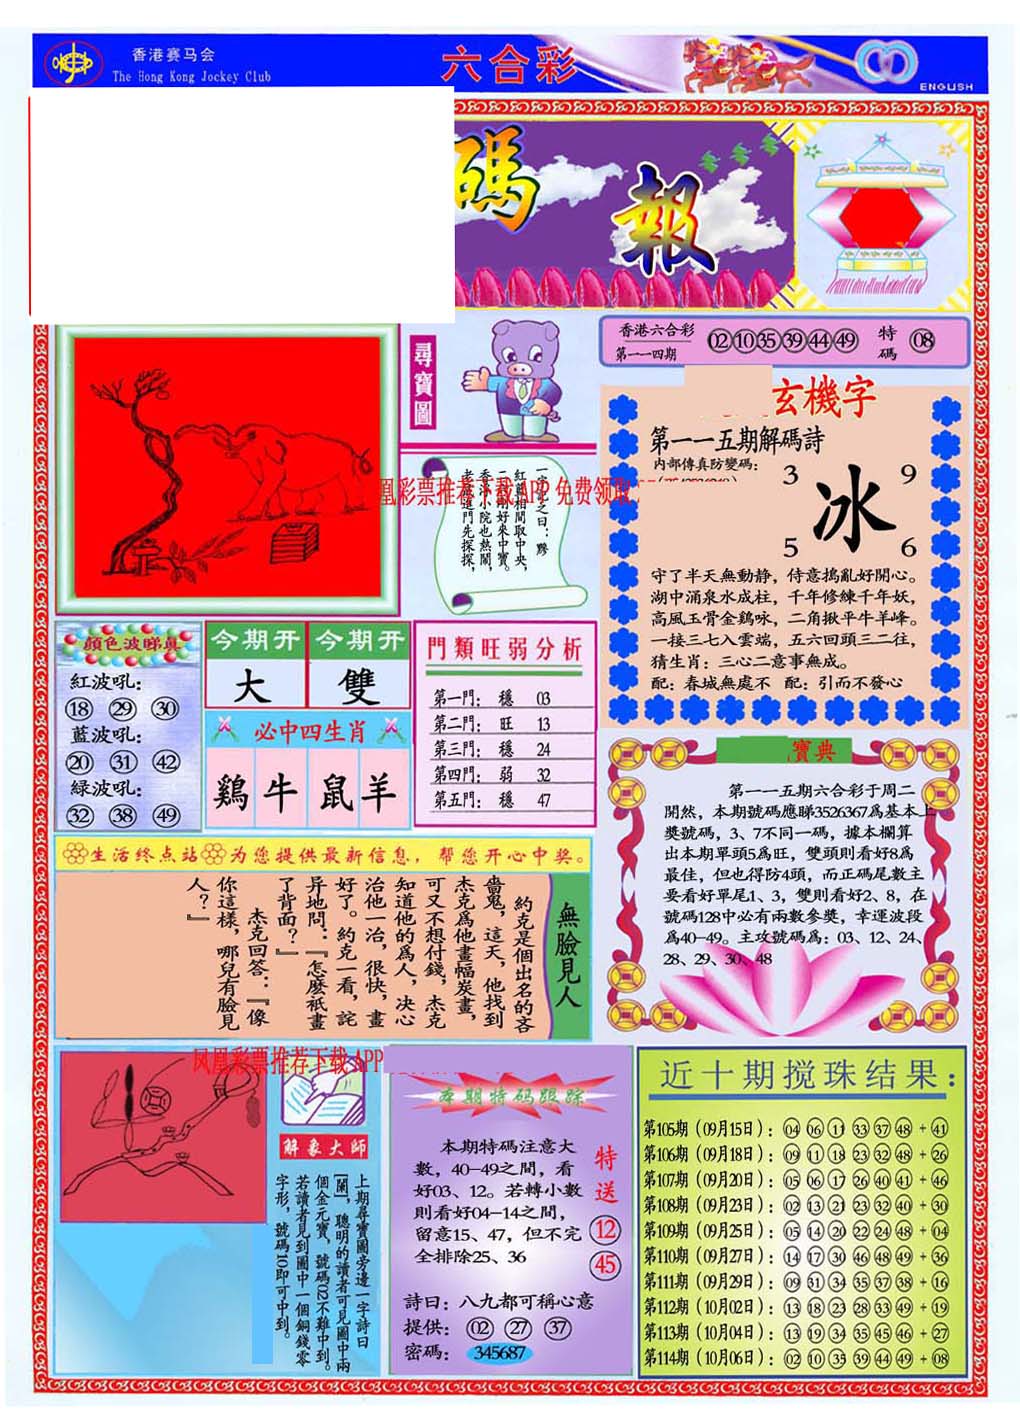 香港赛马会
The Hong Kong Jockey Club
六合彩
ENGLISH
碼
報
尋寶圖
香港六合彩
第一一四期
02 10 35 39 44 49
特碼
08
玄機字
第一一五期解碼詩
内部傳真防變碼:
3 9
冰
5 6
守了半天無動静，侍意搗亂好開心。
湖中涌泉水成柱，千年修練千年妖，
高風玉骨金鷄咏，二角揪平牛羊峰。
一接三七入雲端，五六回頭三二往，
猜生肖：三心二意事無成。
配：春城無處不 配：引而不發心
一字記之曰：黟
紅藍相間取中央，
二八剛好來中寶。
香港小院也熱鬧，
老鼠進門先探探，
凰彩票推荐下载APP 免费领取
顔色波睇真
紅波吼:
18 29 30
藍波吼:
20 31 42
緑波吼:
32 38 49
今期开
大
今期开
雙
必中四生肖
鷄 牛 鼠 羊
門類旺弱分析
第一門： 穩 03
第二門： 旺 13
第三門： 穩 24
第四門： 弱 32
第五門： 穩 47
寶典
第一一五期六合彩于周二
開然，本期號碼應睇3526367爲基本上
獎號碼，3、7不同一碼，據本欄算
出本期單頭5爲旺，雙頭則看好8爲
最佳，但也得防4頭，而正碼尾數主
要看好單尾1、3，雙則看好2、8，在
號碼128中必有兩數參獎，幸運波段
爲40-49。主攻號碼爲：03、12、24、
28、29、30、48
生活终点站 为您提供最新信息，帮您开心中奖。
無臉見人
約克是個出名的吝
嗇鬼，這天，他找到
杰克爲他畫幅炭畫，
可又不想付錢，杰克
知道他的爲人，决心
治他一治，很快，畫
好了。約克一看，詫
异地問：『怎麽衹畫
了背面？』
杰克回答：『像
你這樣，哪兒有臉見
人？』
凤凰彩票推荐下载APP
解象大師
上期尋寶圖旁邊一字詩曰
「闌」，聰明的讀者可見圖中兩
個金元寶，號碼02不難中到。
若讀者見到圖中一個銅錢零
字形，號碼10即可中到。
本期特码跟踪
本期特碼注意大
數，40-49之間，看
好03、12。若轉小數
則看好04-14之間，
留意15、47，但不完
全排除25、36
特送
12
45
詩曰：八九都可稱心意
提供： 02 27 37
密碼： 345687
近十期搅珠结果：
第105期（09月15日）：04 06 11 33 37 48 + 41
第106期（09月18日）：09 11 18 23 32 48 + 26
第107期（09月20日）：05 06 17 26 40 41 + 46
第108期（09月23日）：02 13 21 23 32 40 + 30
第109期（09月25日）：05 14 20 22 24 48 + 04
第110期（09月27日）：14 17 30 46 48 49 + 36
第111期（09月29日）：09 31 34 35 37 38 + 16
第112期（10月02日）：13 18 23 28 33 49 + 19
第113期（10月04日）：13 19 34 35 45 46 + 27
第114期（10月06日）：02 10 35 39 44 49 + 08